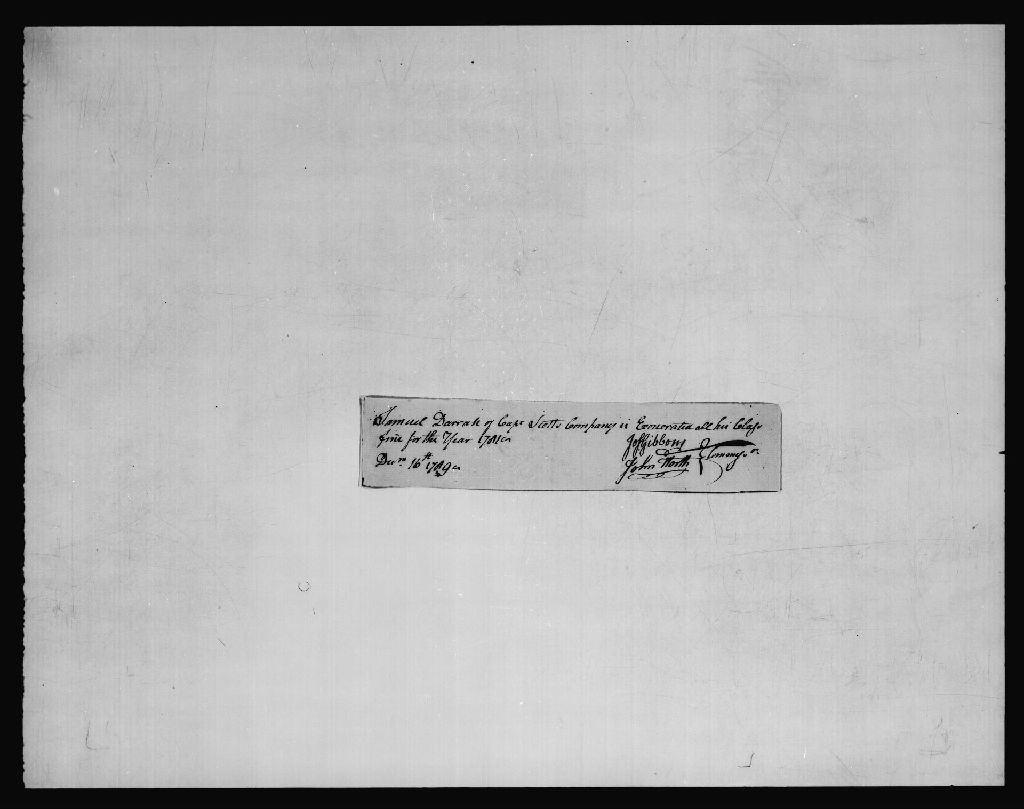 Samuel Darrah of Capt Scotts Company is Exonorated all his Class
fine for the Year 1781
Jos Gibbons
Decm 16th 1789
John North